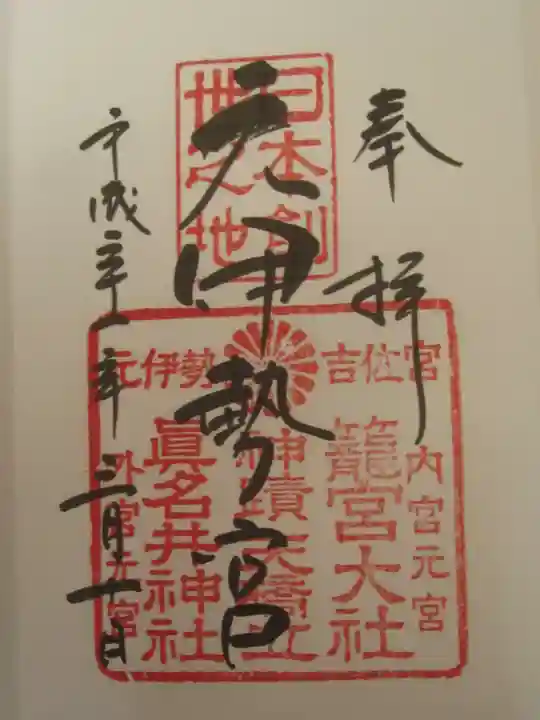 奉拝
日本創
世之地
元伊勢宮
吉佐宮
元伊勢
内宮元宮
籠宮大社
神蹟天橋立
眞名井神社
外宮元宮
平成二十一年三月十一日